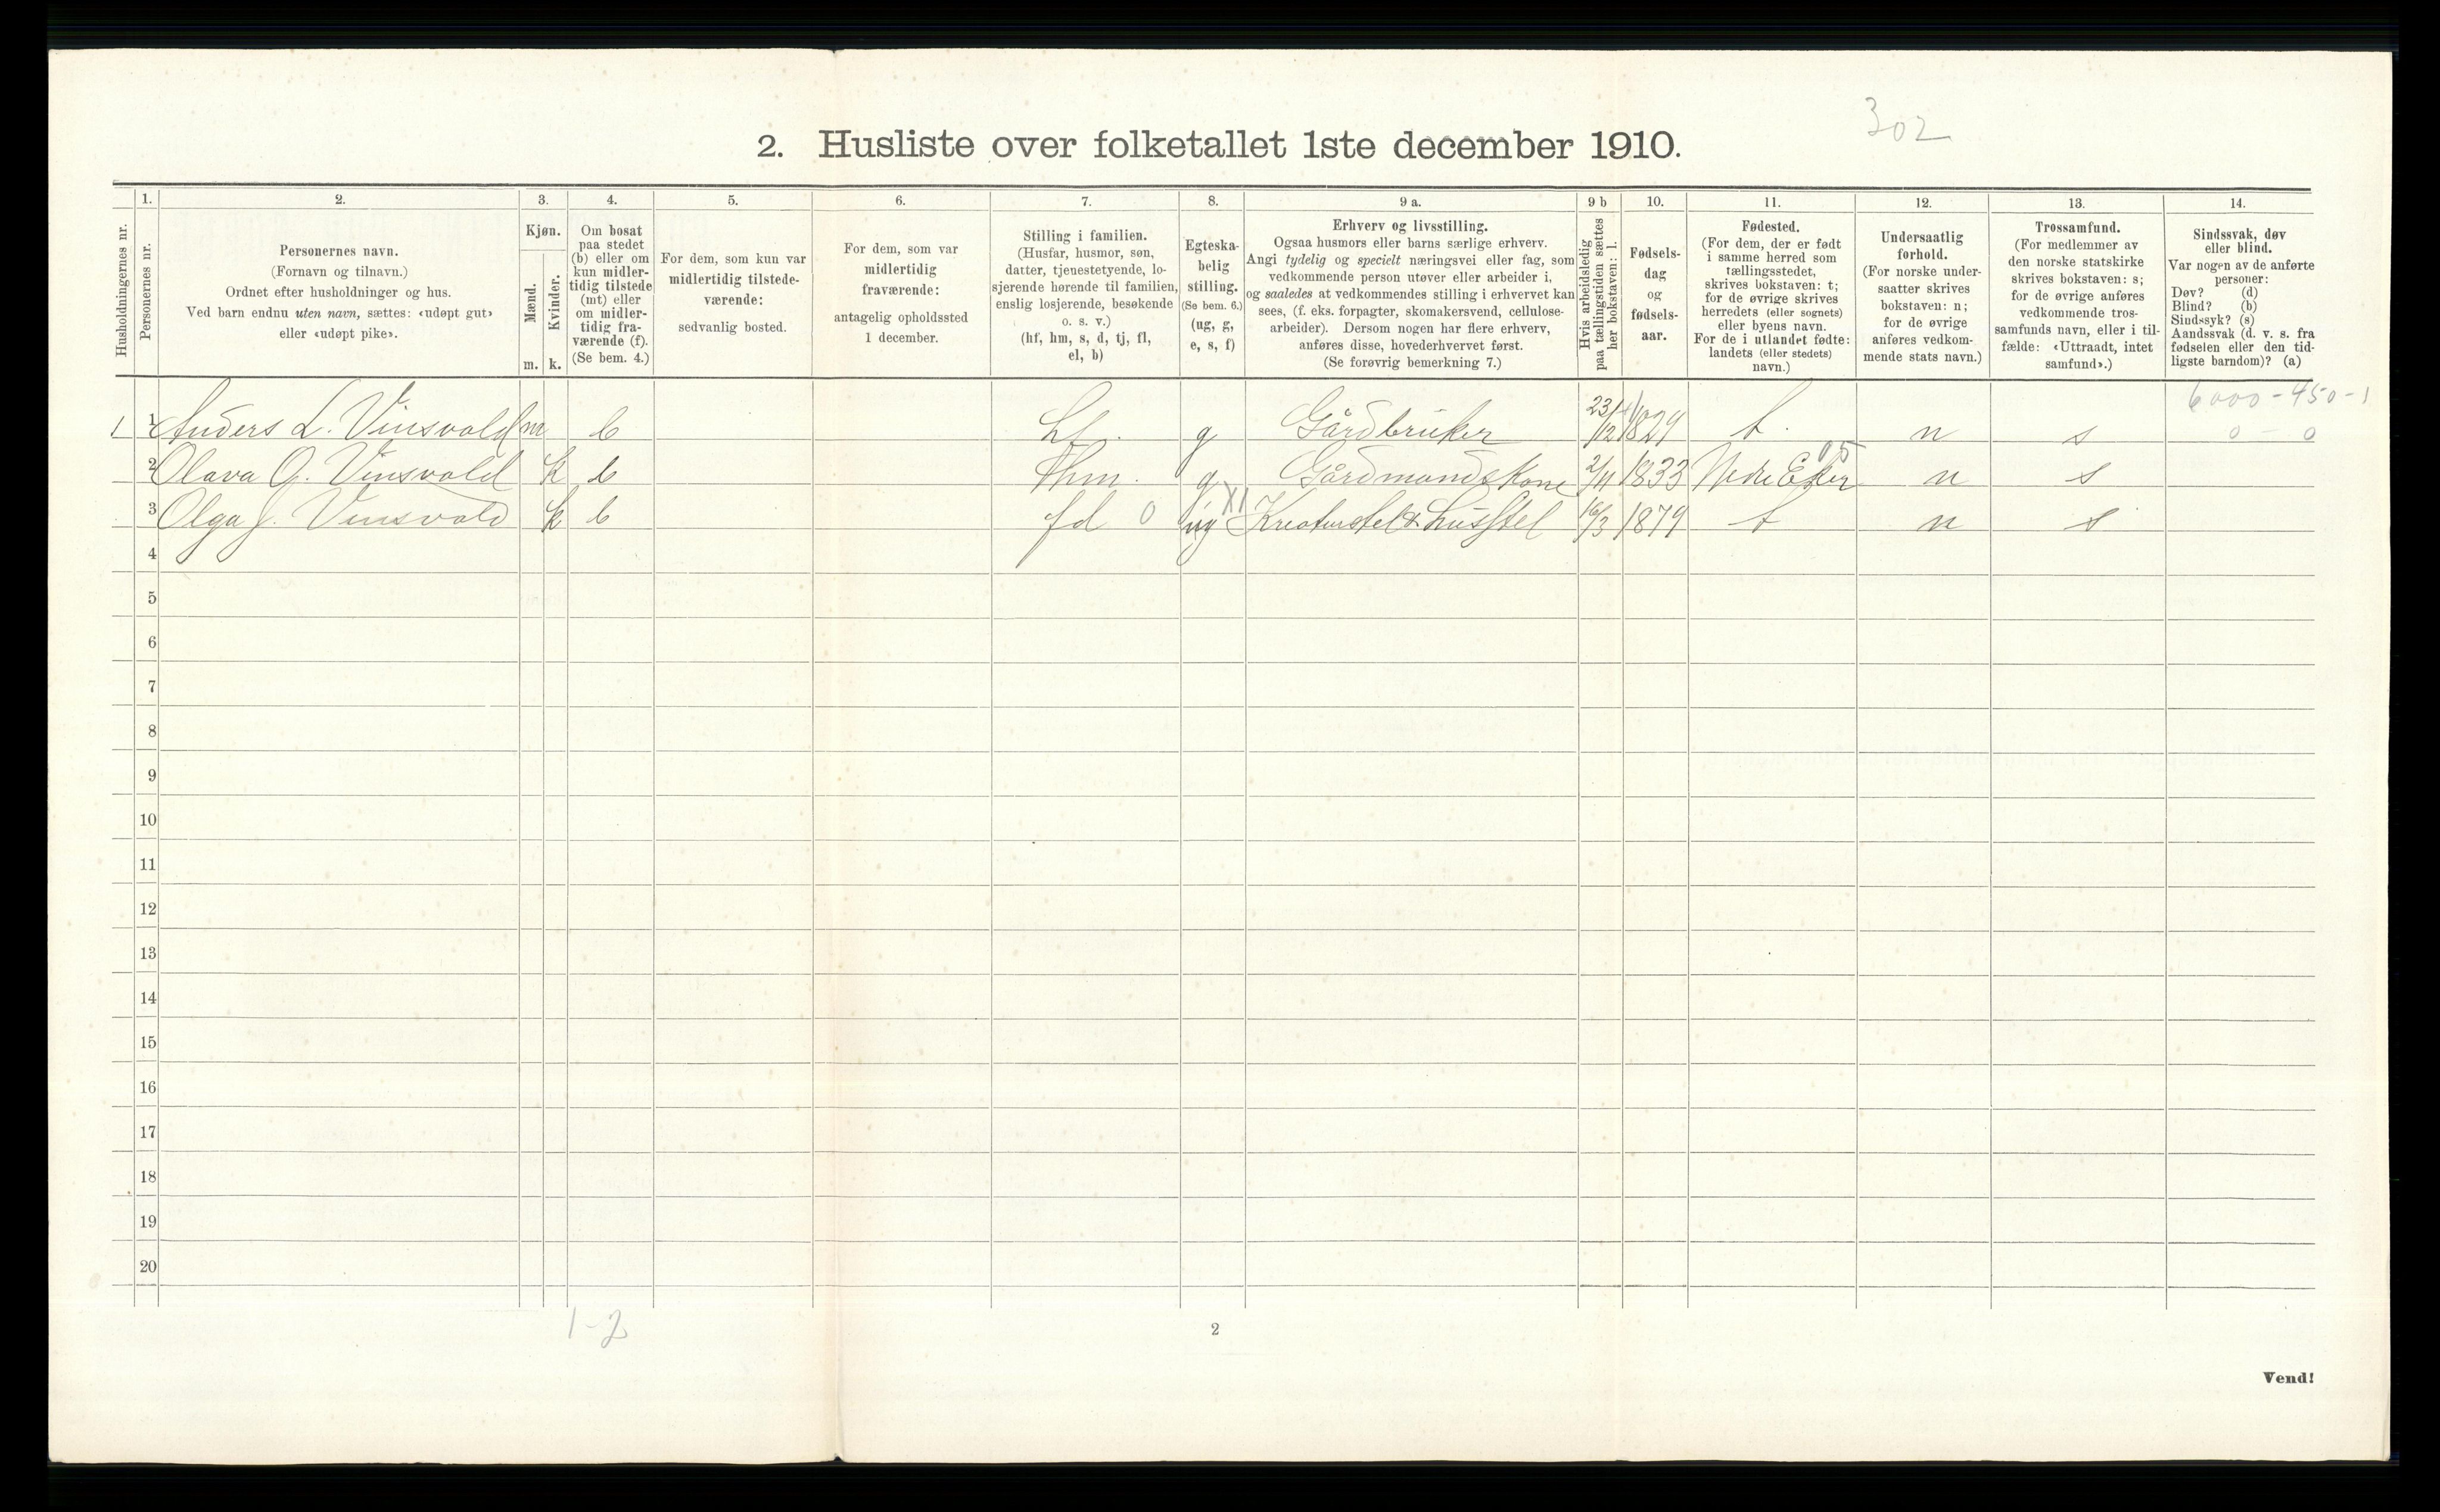 302
2. Husliste over folketallet 1ste december 1910.
1. 2. 3. 4. 5. 6. 7. 8. 9 a. 9 b 10. 11. 12. 13. 14.
Husholdningernes nr.
Personernes nr.
Personernes navn.
(Fornavn og tilnavn.)
Ordnet efter husholdninger og hus.
Ved barn endnu uten navn, sættes: «udøpt gut»
eller «udøpt pike».
Kjøn.
Mænd.
Kvinder.
m. k.
Om bosat
paa stedet
(b) eller om
kun midler-
tidig tilstede
(mt) eller
om midler-
tidig fra-
værende (f).
(Se bem. 4.)
For dem, som kun var
midlertidig tilstede-
værende:
sedvanlig bosted.
For dem, som var
midlertidig
fraværende:
antagelig opholdssted
1 december.
Stilling i familien.
(Husfar, husmor, søn,
datter, tjenestetyende, lo-
sjerende hørende til familien,
enslig losjerende, besøkende
o. s. v.)
(hf, hm, s, d, tj, fl,
el, b)
Egteska-
belig
stilling.
(Se bem. 6.)
(ug, g,
e, s, f)
Erhverv og livsstilling.
Ogsaa husmors eller barns særlige erhverv.
Angi tydelig og specielt næringsvei eller fag, som
vedkommende person utøver eller arbeider i,
og saaledes at vedkommendes stilling i erhvervet kan
sees, (f. eks. forpagter, skomakersvend, cellulose-
arbeider). Dersom nogen har flere erhverv,
anføres disse, hovederhvervet først.
(Se forøvrig bemerkning 7.)
Hvis arbeidsledig
paa tællingstiden sættes
her bokstaven: l.
Fødsels-
dag
og
fødsels-
aar.
Fødested.
(For dem, der er født
i samme herred som
tællingsstedet,
skrives bokstaven: t;
for de øvrige skrives
herredets (eller sognets)
eller byens navn.
For de i utlandet fødte:
landets (eller stedets)
navn.)
Undersaatlig
forhold.
(For norske under-
saatter skrives
bokstaven: n;
for de øvrige
anføres vedkom-
mende stats navn.)
Trossamfund.
(For medlemmer av
den norske statskirke
skrives bokstaven: s;
for de øvrige anføres
vedkommende tros-
samfunds navn, eller i til-
fælde: «Uttraadt, intet
samfund».)
Sindssvak, døv
eller blind.
Var nogen av de anførte
personer:
Døv? (d)
Blind? (b)
Sindssyk? (s)
Aandssvak (d. v. s. fra
fødselen eller den tid-
ligste barndom)? (a)
6000-450-1
1 1 Anders L. Vinsvold m b hf. g Gårdbruker 1829 t. n s 0 - 0
2 Olava G. Vinsvold k b hm. g Gårdmandskone 2/11 1833 Nedre Eker n s
3 Olga J. Vinsvold k b fd 0 ug XI Kreaturstel & husstel 16/3 1879 t n s
4
5
6
7
8
9
10
11
12
13
14
15
16
17
18
19
20
1-2
2
Vend!